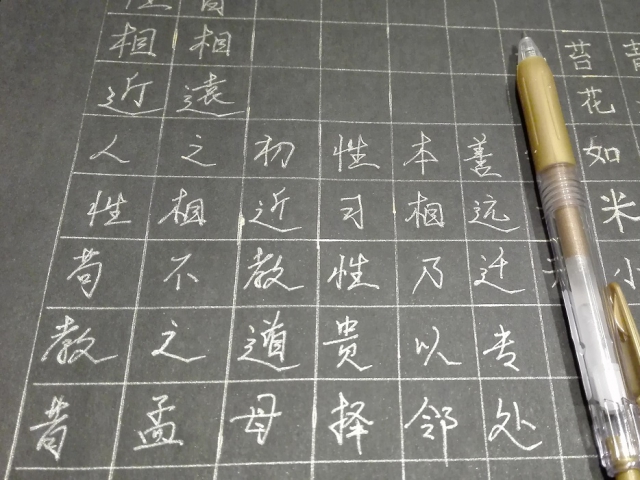 相相
近遠
人之初性本善
性相近习相远
苟不教性乃迁
教之道贵以专
昔孟母择邻处
苔花如米小